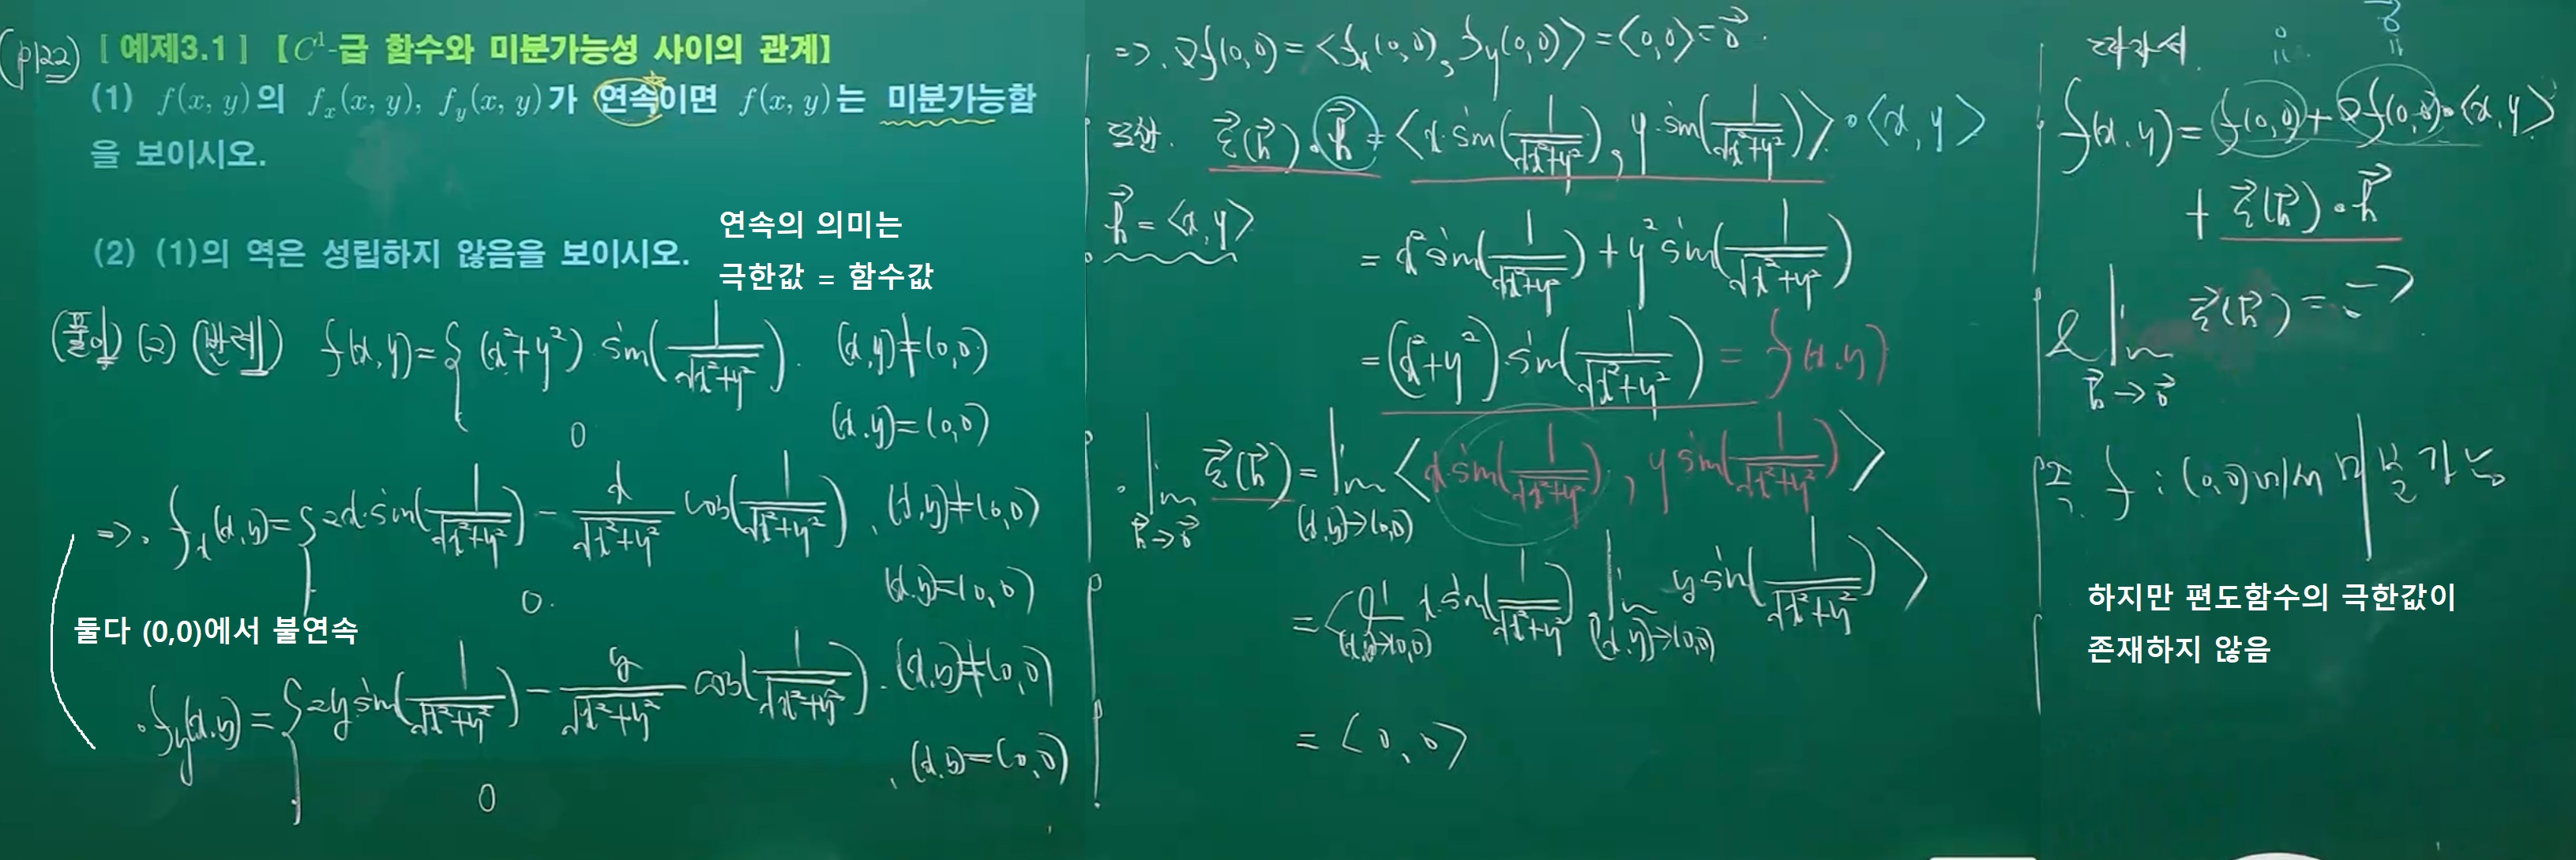 (p122) [ 예제3.1 ] 【C¹-급 함수와 미분가능성 사이의 관계】
(1) f(x, y)의 f_x(x, y), f_y(x, y)가 연속이면 f(x, y)는 미분가능함
을 보이시오.
(2) (1)의 역은 성립하지 않음을 보이시오.
연속의 의미는
극한값 = 함수값
(풀이) (2) (반례) f(x,y) = { (x²+y²) sin(1/√x²+y²). (x,y)≠(0,0)
0 (x,y)=(0,0)
⇒. f_x(x,y) = { 2x·sin(1/√x²+y²) − x/√x²+y² cos(1/√x²+y²), (x,y)≠(0,0)
0. (x,y)=(0,0)
둘다 (0,0)에서 불연속
·f_y(x,y) = { 2y sin(1/√x²+y²) − y/√x²+y² cos(1/√x²+y²). (x,y)≠(0,0)
0 , (x,y)=(0,0)
⇒. ∇f(0,0) = <f_x(0,0), f_y(0,0)> = <0,0> = 0⃗.
또한. ε⃗(h⃗)·h⃗ = <x·sin(1/√x²+y²), y·sin(1/√x²+y²)>·<x,y>
h⃗ = <x,y>
= x² sin(1/√x²+y²) + y² sin(1/√x²+y²)
= (x²+y²)·sin(1/√x²+y²) = f(x,y)
·lim h⃗→0⃗ ε⃗(h⃗) = lim (x,y)→(0,0) <x·sin(1/√x²+y²), y sin(1/√x²+y²)>
= <lim (x,y)→(0,0) x·sin(1/√x²+y²), lim (x,y)→(0,0) y·sin(1/√x²+y²)>
= <0,0>
따라서.
0 0⃗
= =
f(x,y) = f(0,0) + ∇f(0,0)·<x,y>
+ ε⃗(h⃗)·h⃗
& lim h⃗→0⃗ ε⃗(h⃗) = 0⃗
즉. f : (0,0)에서 미분가능
하지만 편도함수의 극한값이
존재하지 않음